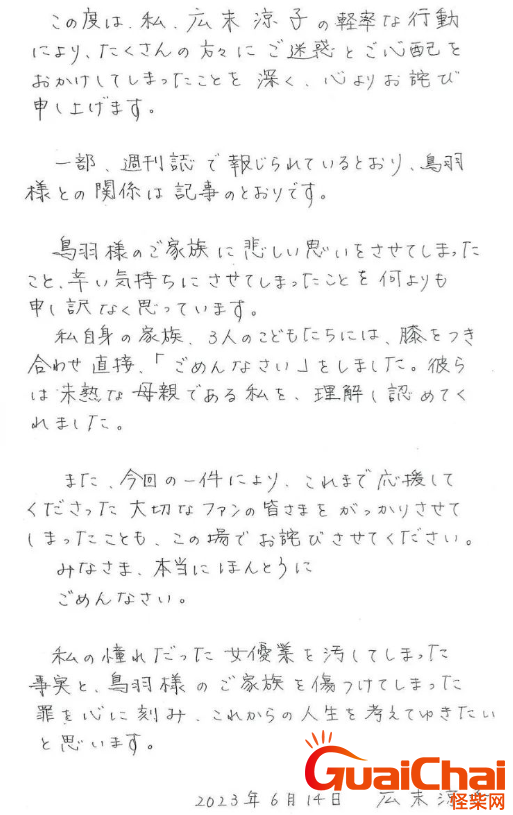 この度は、私、広末涼子の軽率な行動
により、たくさんの方々にご迷惑とご心配を
おかけしてしまったことを深く、心よりお詫び
申し上げます。
一部、週刊誌で報じられているとおり、鳥羽
様との関係は記事のとおりです。
鳥羽様のご家族に悲しい思いをさせてしまった
こと、辛い気持ちにさせてしまったことを何よりも
申し訳なく思っています。
私自身の家族、3人のこどもたちには、膝をつき
合わせ直接、「ごめんなさい」をしました。彼ら
は未熟な母親である私を、理解し認めてく
れました。
また、今回の一件により、これまで応援して
くださった大切なファンの皆さまをがっかりさせて
しまったことも、この場でお詫びさせてください。
みなさま、本当にほんとうに
ごめんなさい。
私の憧れだった女優業を汚してしまった
事実と、鳥羽様のご家族を傷つけてしまった
罪を心に刻み、これからの人生を考えてゆきたい
と思います。
GuaiChai
怪柴网
2023年6月14日 広末涼